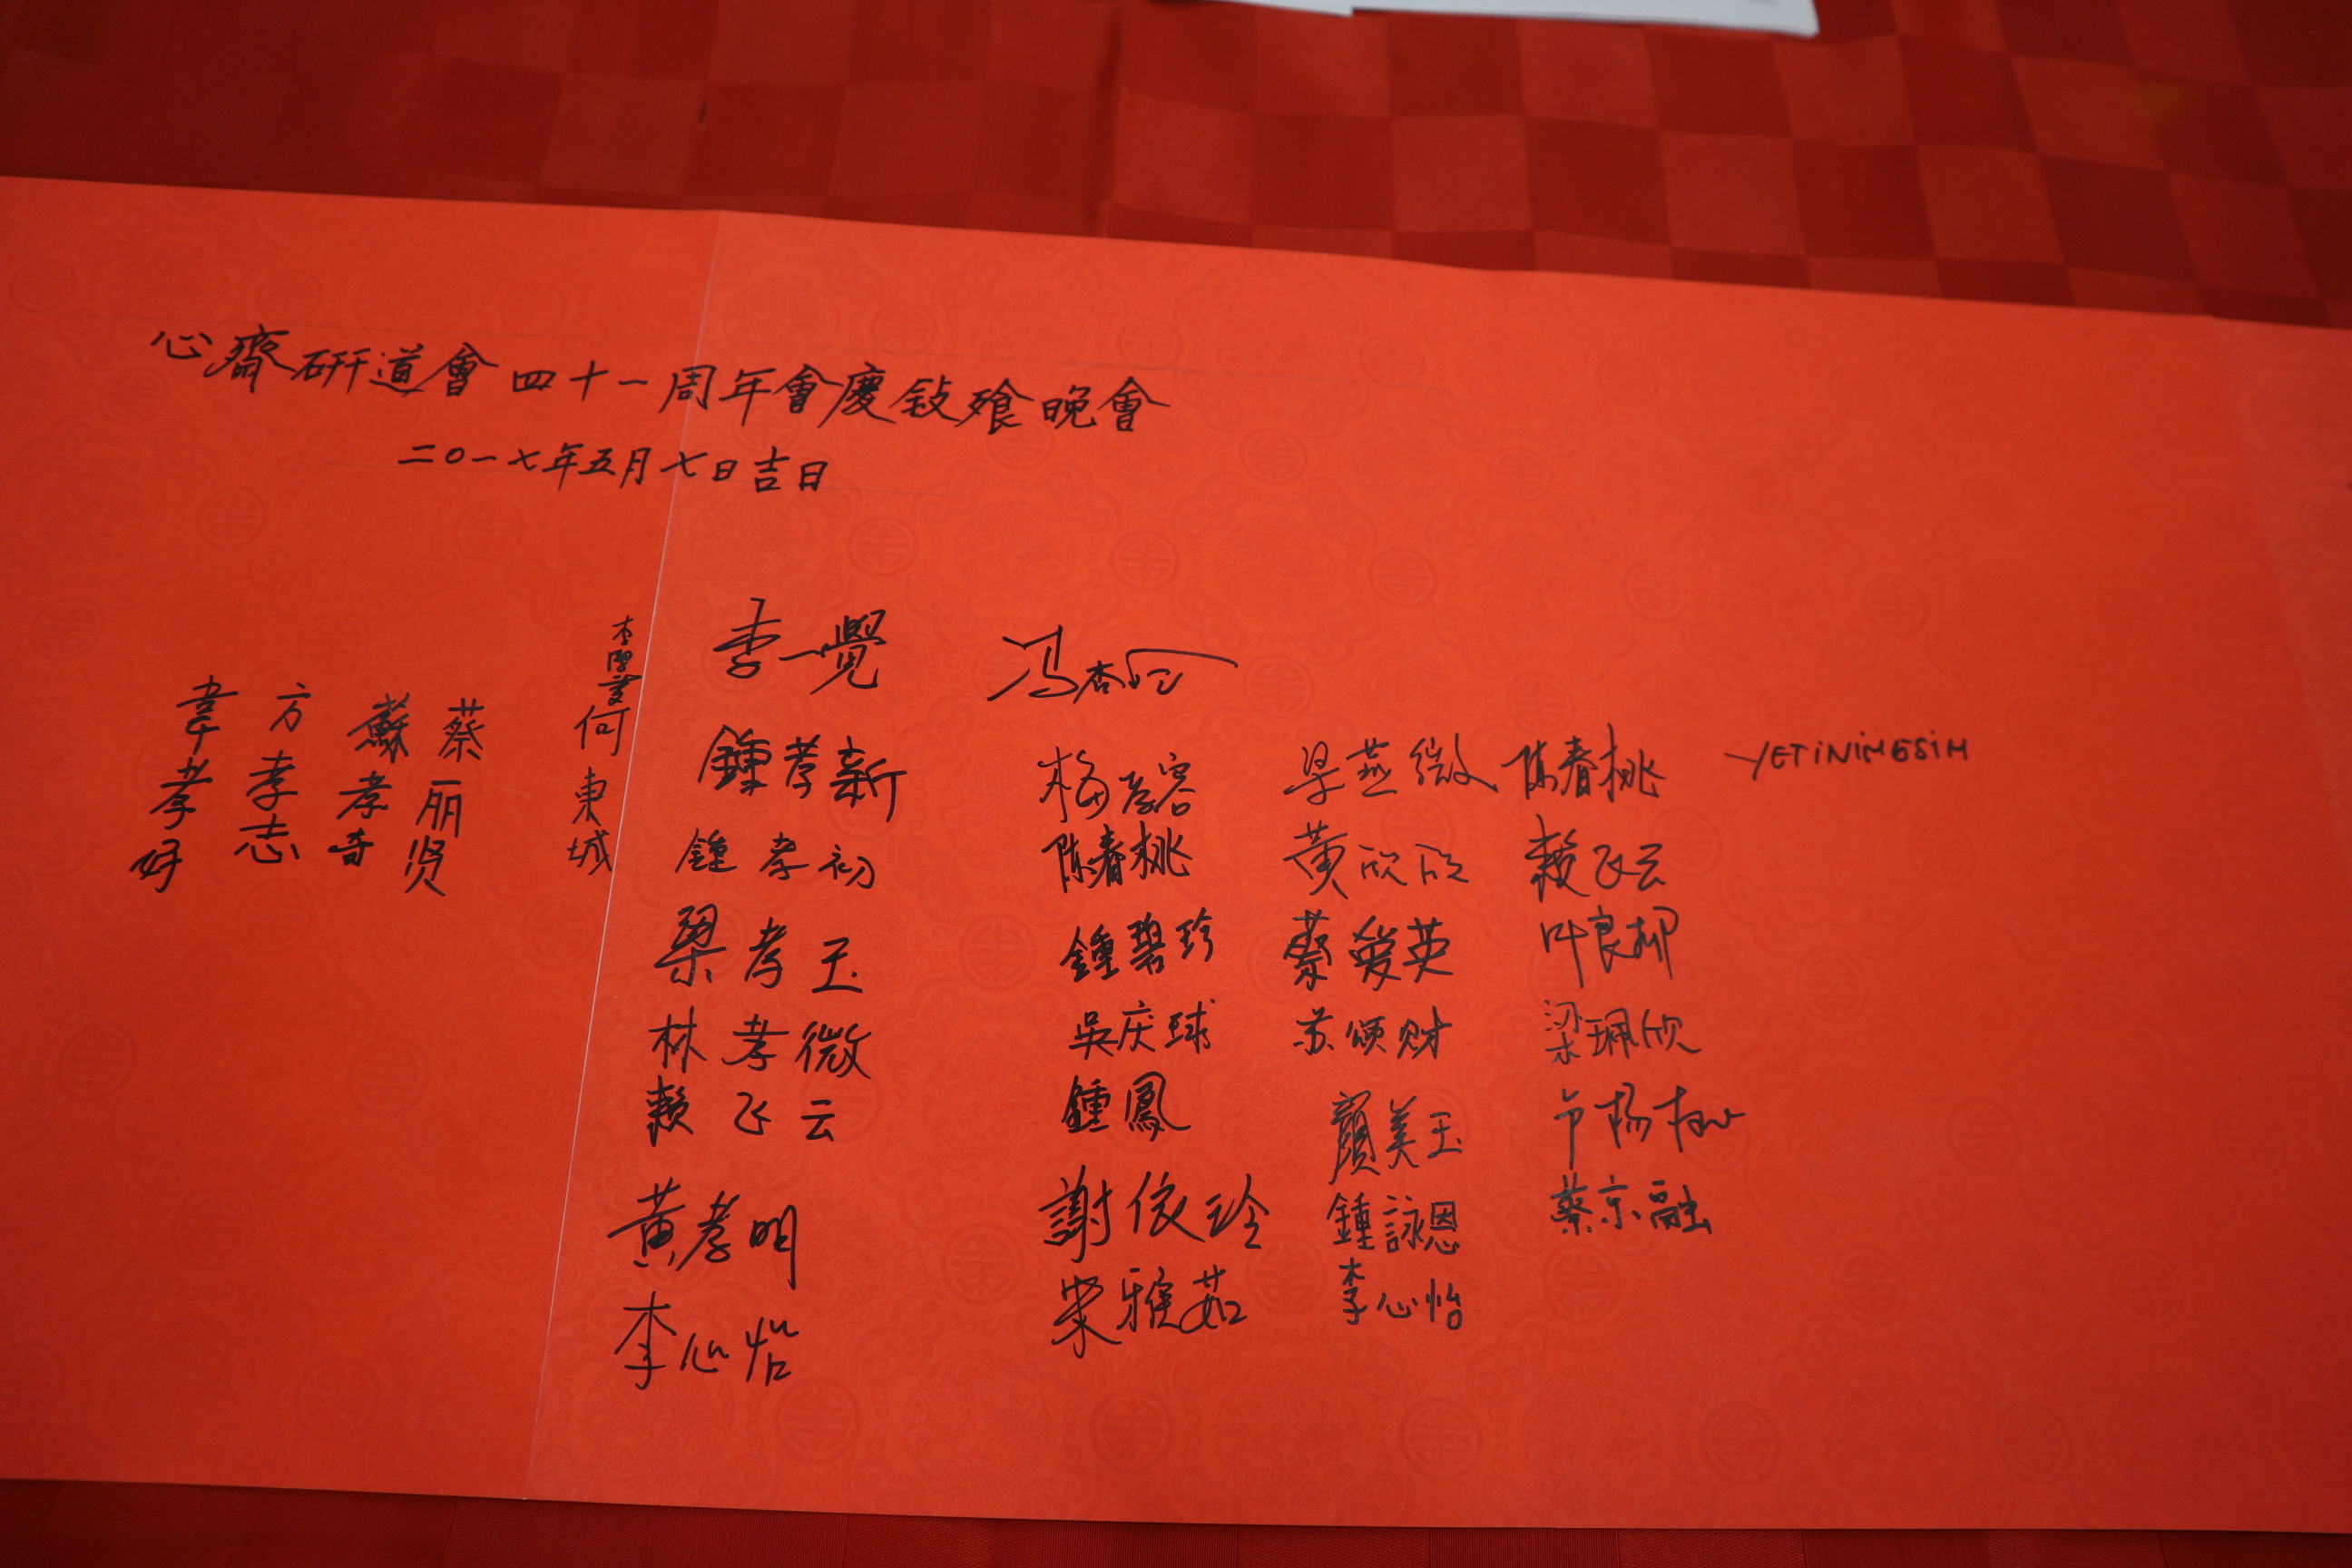 心齋研道會四十一周年會慶敍飱晚會
二〇一七年五月七日吉日
韋孝好
方孝志
蘇孝奇
蔡丽贤
何東城
李一覺
鍾孝新
鍾孝初
梁孝玉
林孝微
賴飞云
黄孝明
李心怡
冯杏
梅孝容
陈春桃
鍾碧珍
吳庆球
鍾鳳
謝依玲
梁雅茹
梁燕微
黃欣欣
蔡愛英
苏頌财
顏美玉
鍾詠恩
李心怡
陈春桃
賴飞云
叶良柳
梁珮欣
蔡京融
YETiNiMESiM